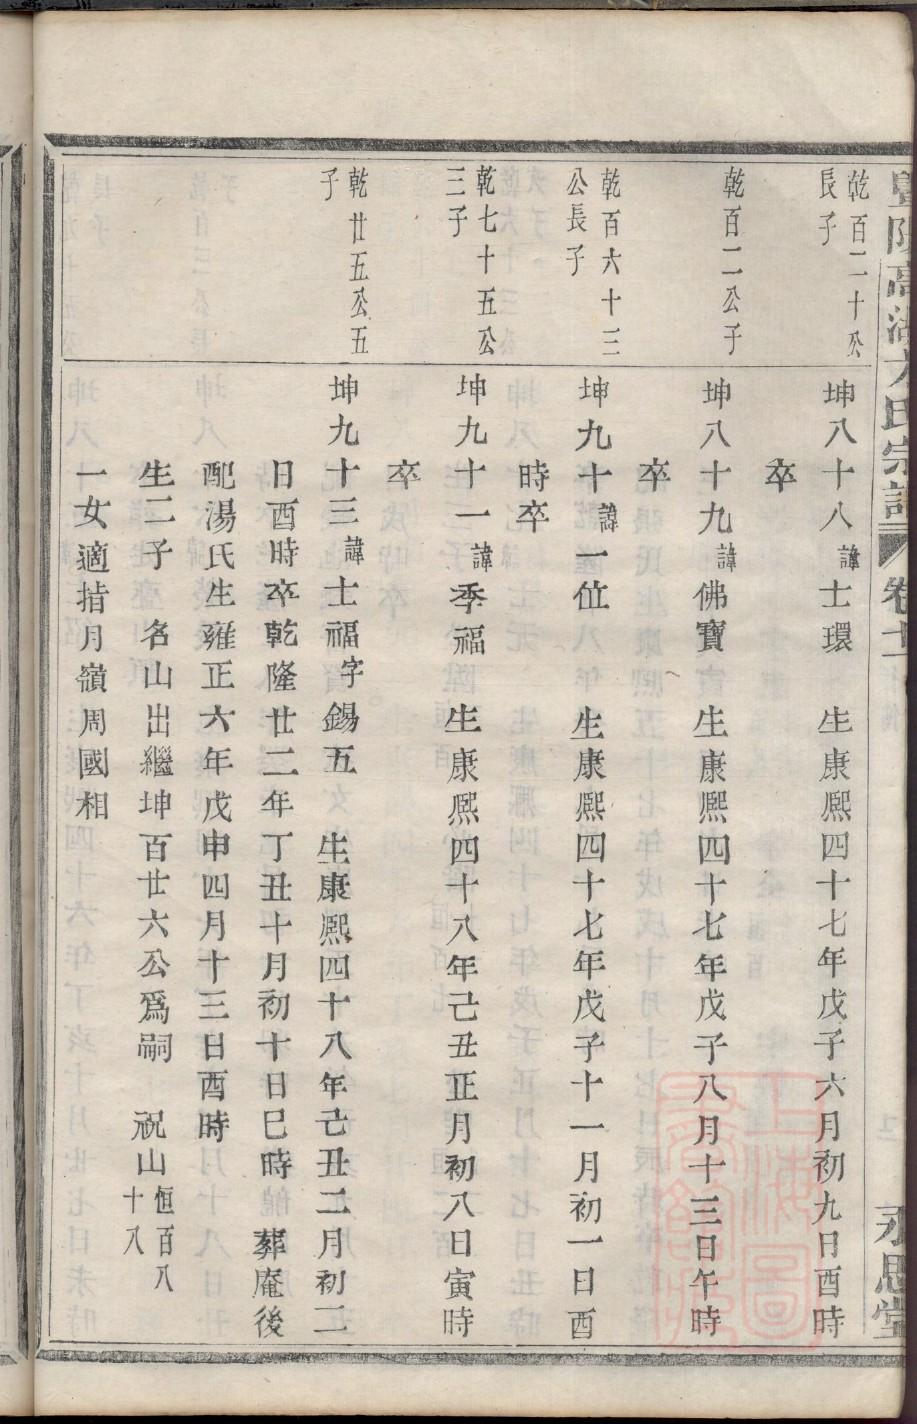 暨陽高湖方氏宗譜 卷十 永思堂
乾百二十公
長子
坤八十八諱士環 生康熙四十七年戊子六月初九日酉時
卒
乾百二公子
坤八十九諱佛寶 生康熙四十七年戊子八月十三日午時
卒
乾百六十三
公長子
坤九十諱一位 生康熙四十七年戊子十一月初一日酉
時卒
乾七十五公
三子
坤九十一諱季福 生康熙四十八年己丑正月初八日寅時
卒
乾廿五公五
子
坤九十三諱士福字錫五 生康熙四十八年己丑二月初二
日酉時卒乾隆廿二年丁丑十月初十日巳時 葬庵後
配湯氏生雍正六年戊申四月十三日酉時
生二子 名山出繼坤百廿六公爲嗣 祝山恒百八十八
一女適揹月嶺周國相